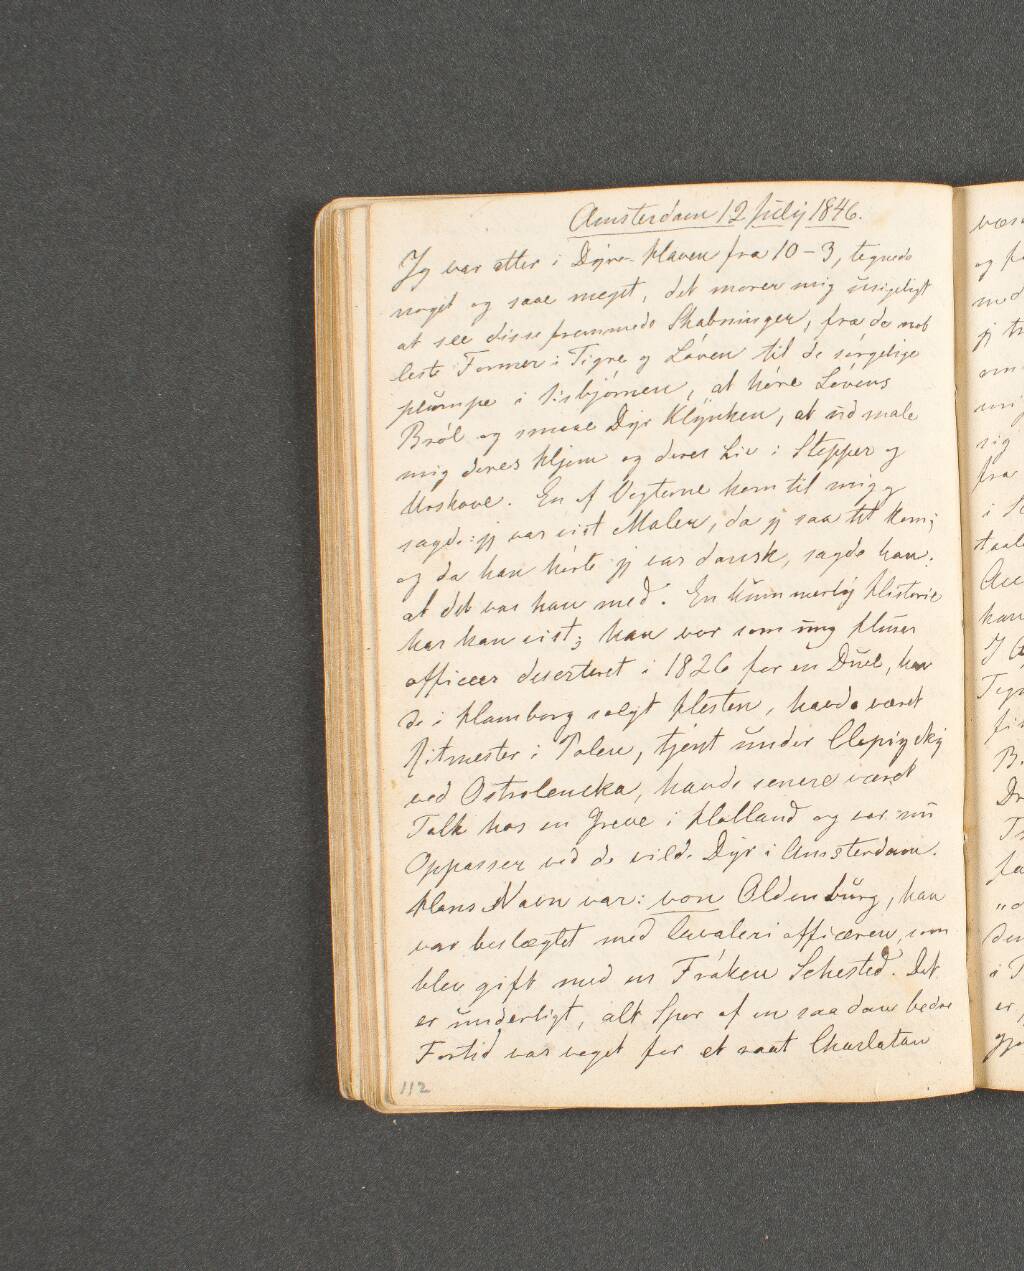 Amsterdam 12 July 1846.
Jeg var atter i Dyre-Haven fra 10-3, tegnede
noget og saae meget, det morer mig usigeligt
at see disse fremmede Skabninger, fra de nob
leste Former i Tigre og Löven til de sørgelige
plumpe i Iisbjörnen, at höre Lövens
Bröl og smaae Dyr Klynken, at udmale
mig deres Hjem og deres Liv i Stepper og
Urskove. En af Vogterne kom til mig og
sagde: jeg var vist Maler, da jeg saa tit kom;
og da han hörte jeg var dansk, sagde han:
at det var han med. En kummerlig Historie
har han vist; han var som ung Husar
officeer deserteret i 1826 for en Duel, hav
de i Hamborg solgt Hesten, havde været
Ritmester i Polen, tjent under
ved Ostrolencka, havde senere været
Tolk hos en Greve i Holland og var nu
Oppasser ved de vilde Dyr i Amsterdam.
Hans Navn var: von Oldenburg, han
var beslægtet med Cavaleriofficæren, som
blev gift med en Fröken Sehested. Det
er underligt, alt Spor af en saadan bedre
Fortid var veget for et raat Charlatan
112